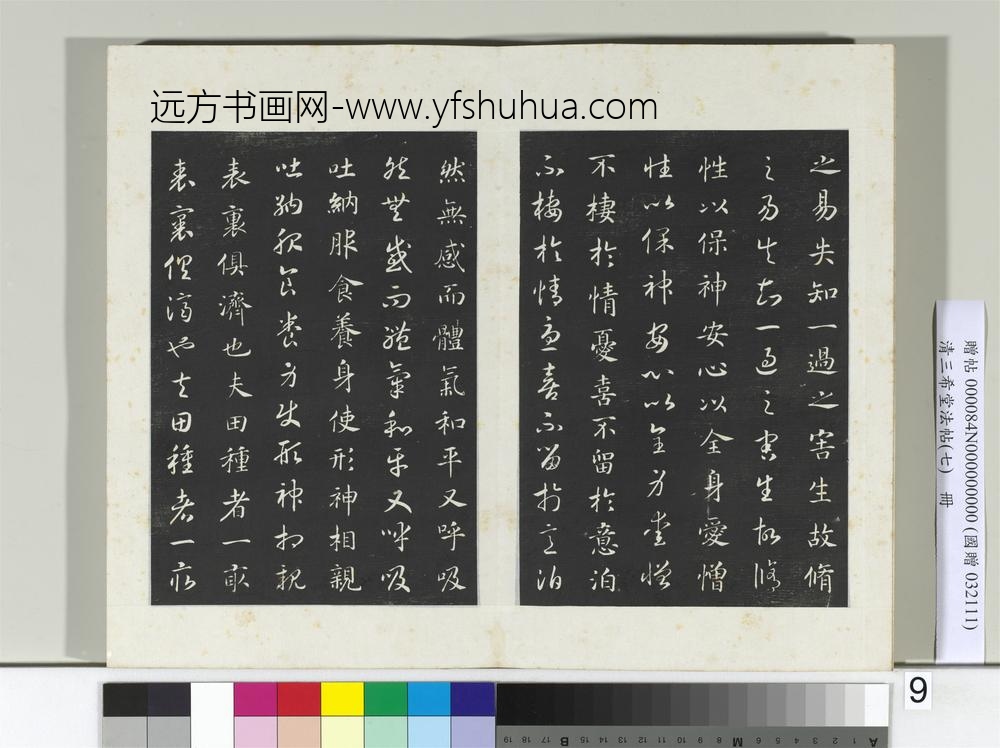 远方书画网-www.yfshuhua.com
之易失知一過之害生故脩
之易失知一過之害生故脩
性以保神安心以全身愛憎
性以保神安心以全身愛憎
不棲於情憂喜不留於意泊
不棲於情憂喜不留於意泊
然無感而體氣和平又呼吸
然無感而體氣和平又呼吸
吐納服食養身使形神相親
吐納服食養身使形神相親
表裏俱濟也夫田種者一畝
表裏俱濟也夫田種者一畝
贈帖 000084N000000000 (國贈 032111)
清三希堂法帖(七) 冊
9
A 1 2 3 4 5 6 M 8 9 10 11 12 13 14 15 B 17 18 19